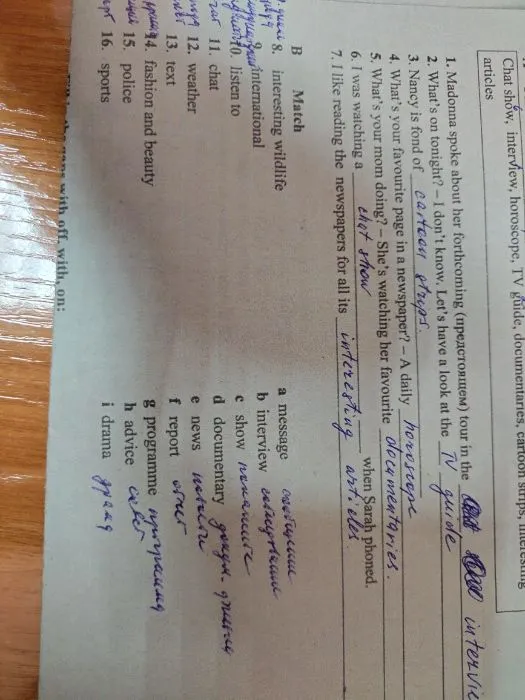 Chat show, interview, horoscope, TV guide, documentaries, cartoon strips, interesting
articles
1. Madonna spoke about her forthcoming (предстоящем) tour in the interview
2. What's on tonight? – I don't know. Let's have a look at the TV guide
3. Nancy is fond of cartoon strips.
4. What's your favourite page in a newspaper? – A daily horoscope
5. What's your mom doing? – She's watching her favourite documentaries.
6. I was watching a chat show when Sarah phoned.
7. I like reading the newspapers for all its interesting articles.
B Match
8. interesting wildlife
9. international
10. listen to
11. chat
12. weather
13. text
14. fashion and beauty
15. police
16. sports
a message сообщение
b interview
c show
d documentary
e news новости
f report отчет
g programme программа
h advice совет
i drama драма
with off, with, on: